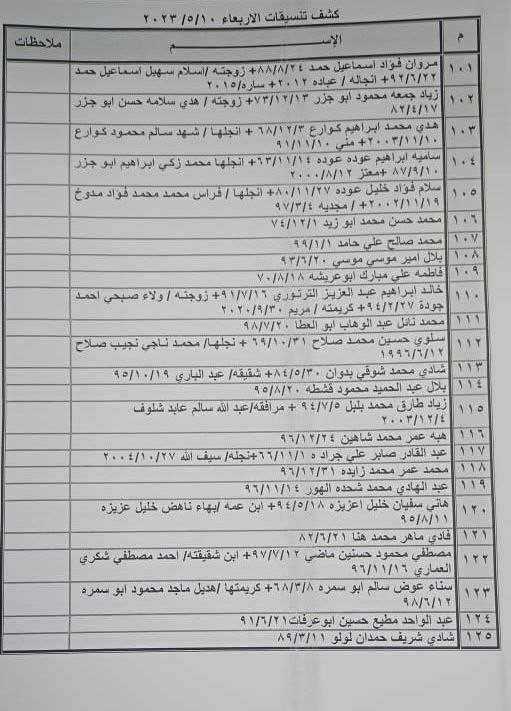 كشف تنسيقات الاربعاء ٢٠٢٣/٥/١٠
م الإســـــــم ملاحظات
١٠١ مروان فؤاد اسماعيل حمد ٨٨/٨/٢٤+ زوجته /اسلام سهيل اسماعيل حمد
٩٢/٦/٢٢+ انجاله / عباده ٢٠١٢+ ساره/٢٠١٥
١٠٢ زياد جمعه محمود ابو جزر ٧٣/١٢/١٣+ زوجته / هدي سلامه حسن ابو جزر
٨٢/٤/١٧
١٠٣ هدي محمد ابراهيم كوارع ٦٨/١٢/٣ + انجلها / شهد سالم محمود كوارع
٢٠٠٣/١١/١٠+ مني ٩١/١١/١٠
١٠٤ ساميه ابراهيم عوده عوده ٦٣/١١/١٤+ انجلها محمد زكي ابراهيم ابو جزر
٨٧/٩/١٠ +معتز ٢٠٠٠/٨/١٢
١٠٥ سلام فؤاد خليل عوده ٨٠/١١/٢٧+ انجلها / فراس محمد محمد فؤاد مدوخ
٢٠٠٢/١١/١٩+ / مجديه ٩٧/٣/٤
١٠٦ محمد حسن محمد ابو زيد ٧٤/١٢/١
١٠٧ محمد صالح علي حامد ٩٩/١/١
١٠٨ بلال امير موسي موسي ٩٣/٦/٢٠
١٠٩ فاطمه علي مبارك ابوعريشه ٧٠/٨/١٨
١١٠ خالد ابراهيم عبد العزيز الترتوري ٩١/٧/١٦+ زوجته / ولاء صبحي احمد
جودة ٩٤/٢/٢٧+ كريمته / مريم ٢٠٢٠/٩/٣٠
١١١ محمد نائل عبد الوهاب ابو العطا ٩٨/٧/٢٠
١١٢ سلوي حسين محمد صلاح ٦٩/١٠/٣١ + نجلها/ محمد ناجي نجيب صلاح
١٩٩٦/٦/١٢
١١٣ شادي محمد شوقي بدوان ٨٤/٥/٣٠+ شقيقه/ عبد الباري ٩٥/١٠/١٩
١١٤ بلال عبد الحميد محمود قشطه ٩٥/٨/٢٠
١١٥ زياد طارق محمد بلبل ٩٤/٧/٥ + مرافقه/عبد الله سالم عابد شلوف
٢٠٠٣/١٢/٤
١١٦ هبه عمر محمد شاهين ٩٦/١٢/٢٤
١١٧ عبد القادر صابر علي جراد ه ٦٦/١١/١+نجله/ سيف الله ٢٠٠٤/١٠/٢٧
١١٨ محمد عمر محمد زايده ٩٦/١٢/٣١
١١٩ عبد الهادي محمد شحده الهور ٩٦/١١/١٤
١٢٠ هاني سفيان خليل اعزيزه ٩٤/٥/١٨+ ابن عمه /بهاء ناهض خليل عزيزه
٩٥/٨/١١
١٢١ فادي ماهر محمد هنا ٨٢/٦/٢١
١٢٢ مصطفي محمود حسنين ماضي ٩٧/٧/١٢+ ابن شقيقته/ احمد مصطفي شكري
العماري ٩٦/١١/١٦
١٢٣ سناء عوض سالم ابو سمره ٦٨/٣/٨+ كريمتها /هديل ماجد محمود ابو سمره
٩٨/٦/١٢
١٢٤ عبد الواحد مطيع حسين ابوعرفات٩١/٦/٢١
١٢٥ شادي شريف حمدان لولو ٨٩/٣/١١